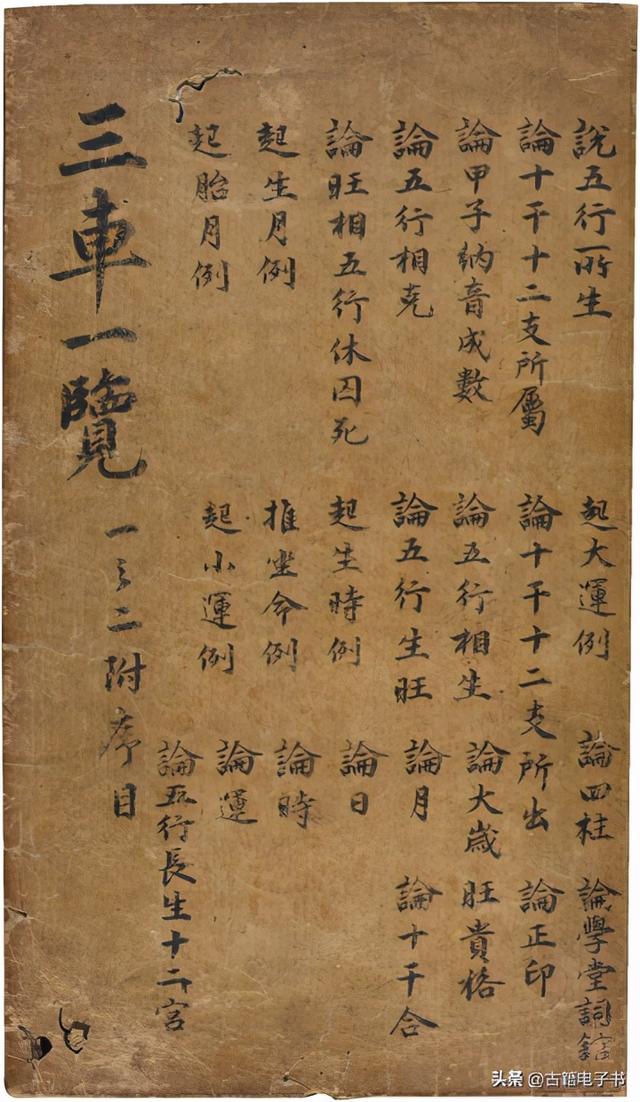 說五行所生
論十干十二支所屬
論甲子納音成數
論五行相克
論旺相五行休囚死
起生月例
起胎月例
起大運例
論十干十二支所出
論五行相生
論五行生旺
起生時例
推坐命例
起小運例
論四柱
論大歲
論月
論日
論時
論運
論五行長生十二宮
論學堂詞館
論正印
旺貴格
論十干合
三車一覽
一之二附序目
头条 @古籍电子书